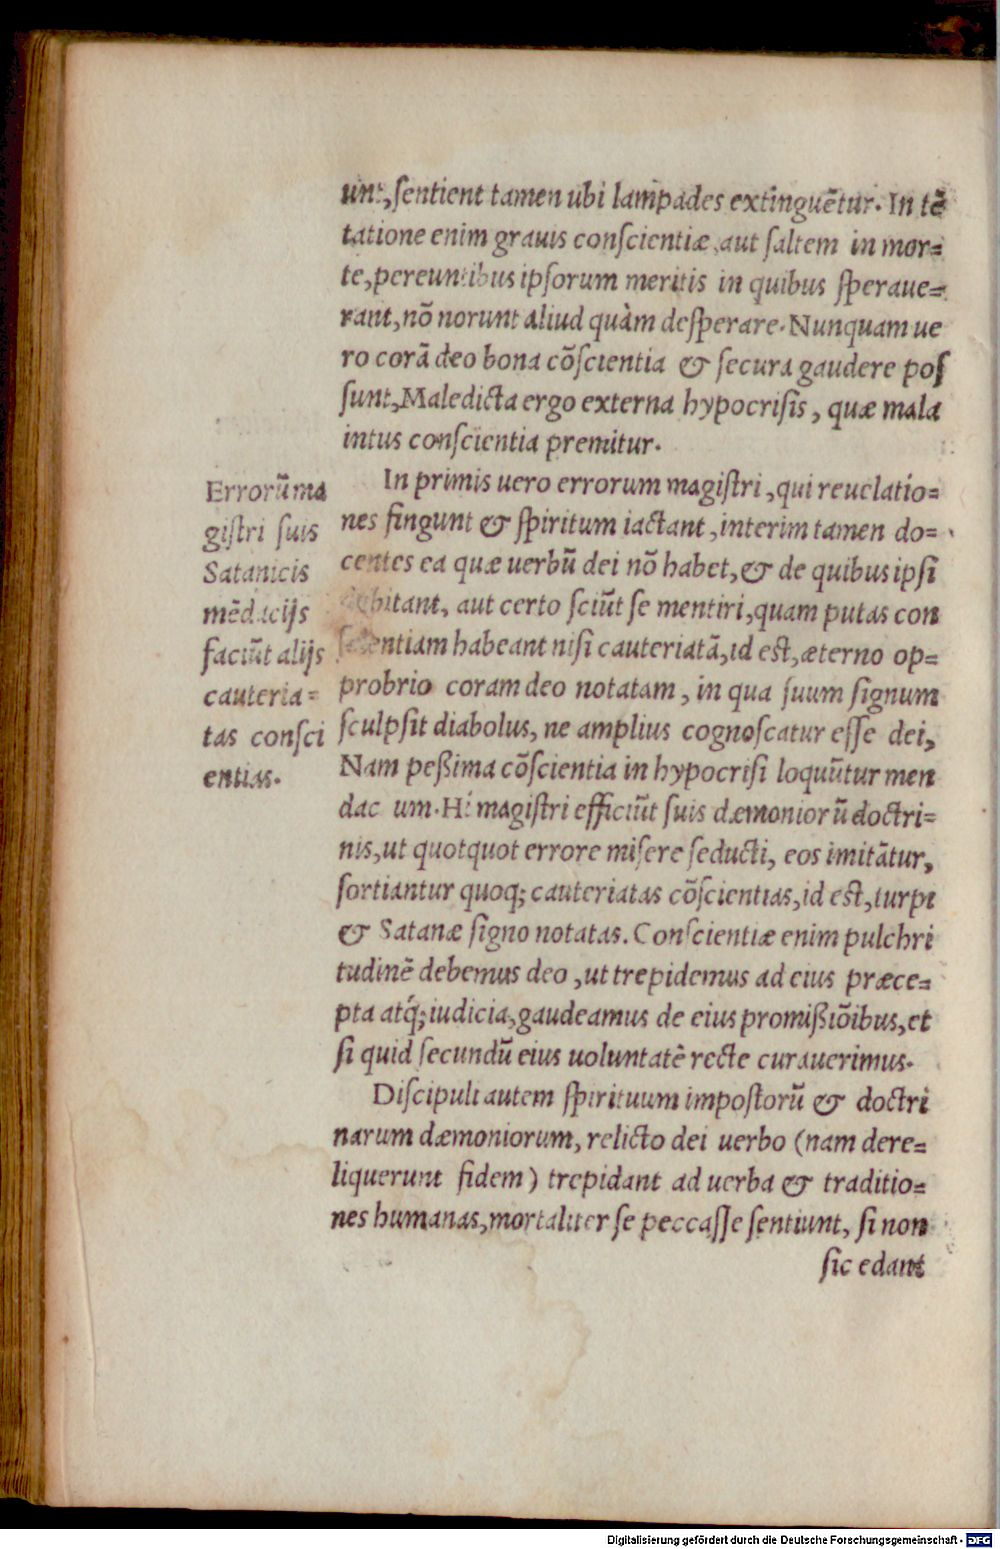 unt, ſentient tamen ubi lampades extinguẽtur. In tẽ
tatione enim grauis conſcientiæ, aut ſaltem in mor=
te, pereuntibus ipſorum meritis in quibus ſperaue=
rant, nõ norunt aliud quàm deſperare. Nunquam ue
ro corã deo bona cõſcientia & ſecura gaudere poſ
ſunt, Maledicta ergo externa hypocriſis, quæ mala
intus conſcientia premitur.
In primis uero errorum magiſtri, qui reuelatio=
nes fingunt & ſpiritum iactant, interim tamen do=
centes ea quæ uerbũ dei nõ habet, & de quibus ipſi
dubitant, aut certo ſciũt ſe mentiri, quam putas con
ſcientiam habeant niſi cauteriatã, id eſt, æterno op=
probrio coram deo notatam, in qua ſuum ſignum
ſculpſit diabolus, ne amplius cognoſcatur eſſe dei,
Nam peßima cõſcientia in hypocriſi loquũtur men
dac um. Hi magiſtri efficiũt ſuis dæmoniorũ doctri=
nis, ut quotquot errore miſere ſeducti, eos imitãtur,
ſortiantur quoq; cauteriatas cõſcientias, id eſt, turpi
& Satanæ ſigno notatas. Conſcientiæ enim pulchri
tudinẽ debemus deo, ut trepidemus ad eius præce=
pta atq́; iudicia, gaudeamus de eius promißiõibus, et
ſi quid ſecundũ eius uoluntatẽ recte curauerimus.
Diſcipuli autem ſpirituum impoſtorũ & doctri
narum dæmoniorum, relicto dei uerbo (nam dere=
liquerunt fidem) trepidant ad uerba & traditio=
nes humanas, mortaliter ſe peccaſſe ſentiunt, ſi non
ſic edant
Errorũ ma
giſtri ſuis
Satanicis
mẽdacijs
faciũt alijs
cauteria=
tas conſci
entias.
Digitalisierung gefördert durch die Deutsche Forschungsgemeinschaft - DFG